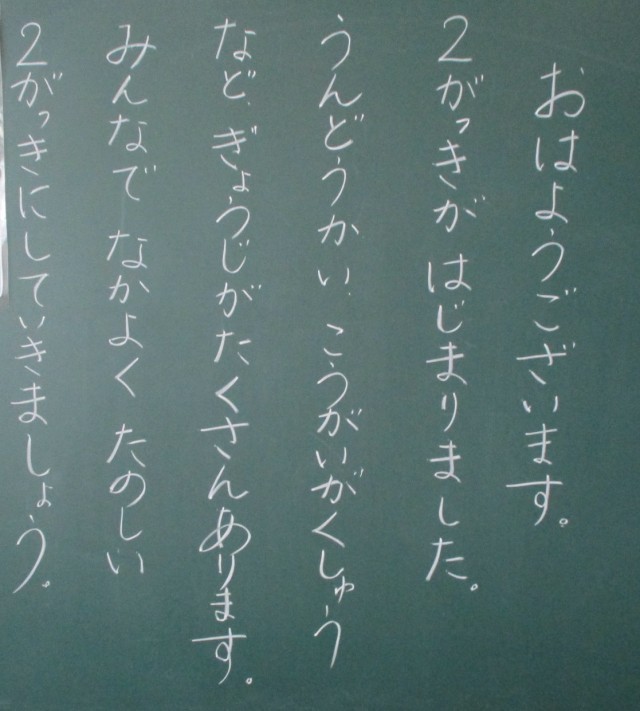 おはようございます。
2がっきが はじまりました。
うんどうかい、こうがいがくしゅう
など、ぎょうじがたくさんあります。
みんなで なかよく たのしい
2がっきにしていきましょう。